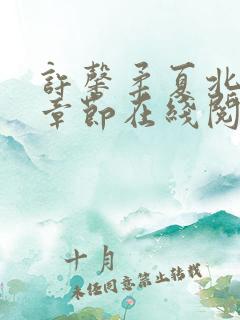 許馨柔夏北
章節在綫閱
十月
未經同意禁止轉載